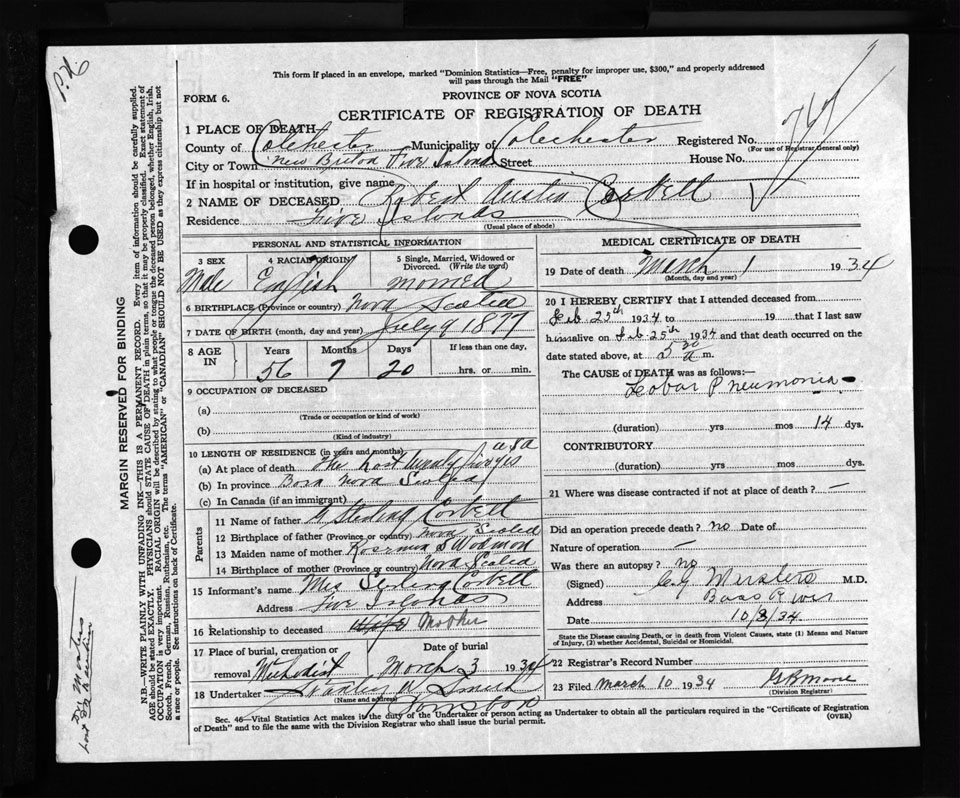 This form if placed in an envelope, marked "Dominion Statistics—Free, penalty for improper use, $300," and properly addressed
will pass through the Mail "FREE"
FORM 6.
PROVINCE OF NOVA SCOTIA
CERTIFICATE OF REGISTRATION OF DEATH
1 PLACE OF DEATH
County of Colchester Municipality of Colechester Registered No.
(For use of Registrar General only)
City or Town New Briton Five Islands Street House No.
If in hospital or institution, give name
2 NAME OF DECEASED Robert Austin Corbett
Residence Five Islands
(Usual place of abode)
PERSONAL AND STATISTICAL INFORMATION
3 SEX 4 RACIAL ORIGIN 5 Single, Married, Widowed or Divorced. (Write the word)
Male English
6 BIRTHPLACE (Province or country) Nova Scotia
7 DATE OF BIRTH (month, day and year) July 9 1877
8 AGE IN Years Months Days If less than one day,
56 7 20 hrs. or min.
9 OCCUPATION OF DECEASED
(a)
(Trade or occupation or kind of work)
(b)
(Kind of industry)
10 LENGTH OF RESIDENCE (in years and months) USA
(a) At place of death The Last twenty five yrs
(b) In province Born Nova Scotia
(c) In Canada (if an immigrant)
Parents
11 Name of father Sterling Corbett
12 Birthplace of father (Province or country) Nova Scotia
13 Maiden name of mother
14 Birthplace of mother (Province or country) Nova Scotia
15 Informant's name Mrs Sterling Corbett
Address Five Islands
16 Relationship to deceased Wife Mother
17 Place of burial, cremation or removal Date of burial
Methodist March 3 1934
18 Undertaker
(Name and address)
MEDICAL CERTIFICATE OF DEATH
19 Date of death March 1 1934
(Month, day and year)
20 I HEREBY CERTIFY that I attended deceased from
Feb 25th 1934 to 19 that I last saw
him alive on Feb 25th 1934 and that death occurred on the
date stated above, at m.
The CAUSE of DEATH was as follows:—
Lobar Pneumonia
(duration) yrs mos 14 dys.
CONTRIBUTORY
(duration) yrs mos dys.
21 Where was disease contracted if not at place of death? —
Did an operation precede death? no Date of
Nature of operation —
Was there an autopsy? no
(Signed) M.D.
Address Bass River
Date 10/3/34
State the Disease causing Death, or in death from Violent Causes, state (1) Means and Nature of Injury, (2) whether Accidental, Suicidal or Homicidal.
22 Registrar's Record Number
23 Filed March 10 1934 G R Moore
(Division Registrar)
Sec. 46—Vital Statistics Act makes it the duty of the Undertaker or person acting as Undertaker to obtain all the particulars required in the "Certificate of Registration
of Death" and to file the same with the Division Registrar who shall issue the burial permit. (OVER)
MARGIN RESERVED FOR BINDING
N.B.—WRITE PLAINLY WITH UNFADING INK—THIS IS A PERMANENT RECORD. Every item of information should be carefully supplied.
AGE should be stated EXACTLY. PHYSICIANS should STATE CAUSE OF DEATH in plain terms, so that it may be properly classified. Exact statement of
OCCUPATION is very important. RACIAL ORIGIN will be described by stating to what people or tongue the deceased person belonged, whether English, Irish,
Scotch, French, German, Russian, Ruthenian, etc. The terms "AMERICAN" or "CANADIAN" SHOULD NOT BE USED as they express citizenship but not
a race or people. See instructions on back of Certificate.